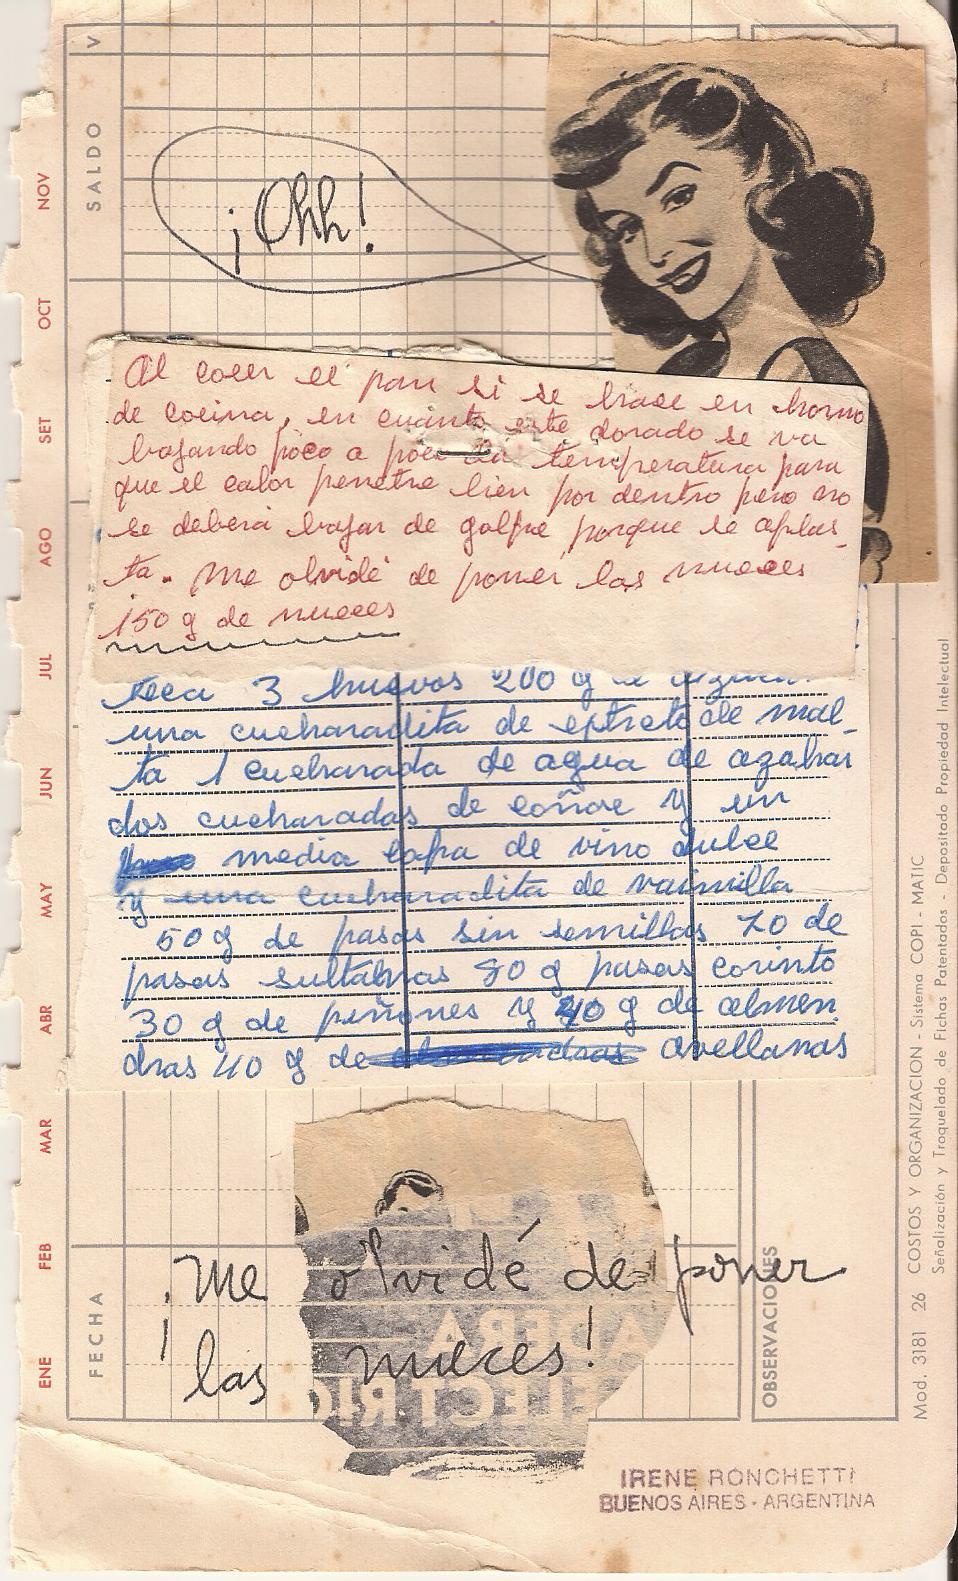 ¡Ohh!
Al coser el pan si se hace en horno
de cocina, en cuanto este dorado se va
bajando poco a poco la temperatura para
que el calor penetre bien por dentro pero no
se deberá bajar de golpe porque se aplas_
ta. Me olvidé de poner las nueces
150 g de nueces
teca 3 huevos 200 g de
una cucharadita de estrato de mal_
ta 1 cucharada de agua de azahar
dos cucharadas de coñac y un
media copa de vino dulce
y una cucharadita de vainilla
50 g de pasas sin semillas 70 de
pasas sultanas 80 g pasas corinto
30 g de piñones y 40 g de almen_
dras 40 g de avellanas
¡Me olvidé de poner
las nueces!
IRENE RONCHETTI
BUENOS AIRES - ARGENTINA
ENE FEB MAR ABR MAY JUN JUL AGO SET OCT NOV
FECHA
SALDO
V
OBSERVACIONES
Mod. 3181 26 COSTOS Y ORGANIZACION - Sistema COPI - MATIC
Señalización y Troquelado de Fichas Patentados - Depositado Propiedad Intelectual